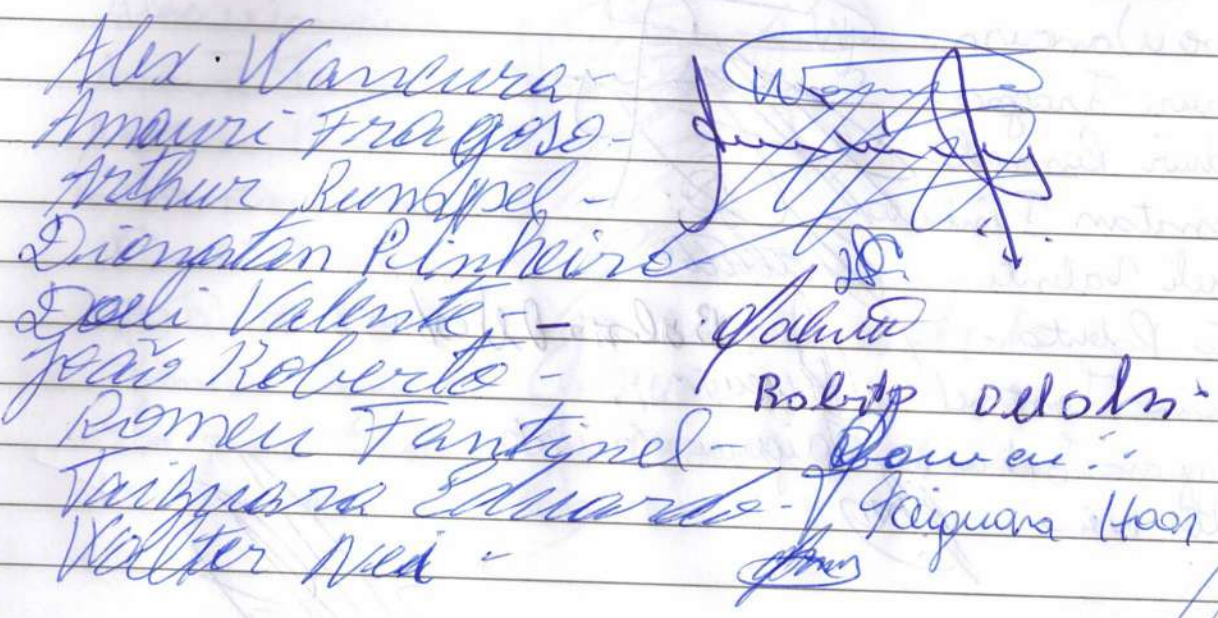 Alex Wancura -
Amauri Fragoso -
Arthur Rundspel -
Diongatan Pinheiro
Doeli Valente - Valente
João Roberto - Roberto
Romeu Fantinel - Romeu
Taiguara Eduardo - Taiguara Haas
Walter Nei -